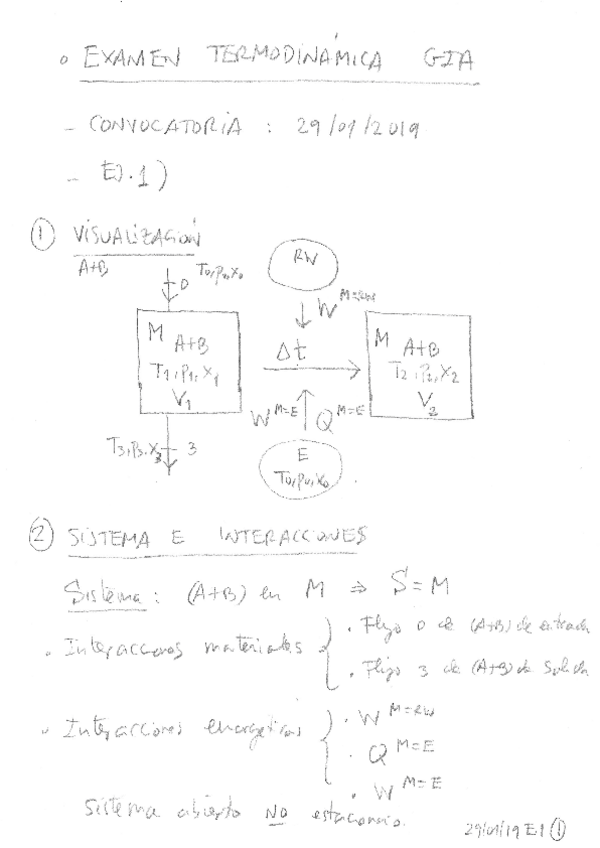 ◦ EXAMEN TERMODINÁMICA GIA
- CONVOCATORIA : 29/01/2019
- EJ.1)
① VISUALIZACIÓN
A+B
0 T0,p0,x0
RW
W M=RW
M A+B
T1,p1,x1
V1
Δt
M A+B
T2,p2,x2
V2
W M=E Q M=E
T3,p3,x3 3
E
T0,p0,x0
② SISTEMA E INTERACCIONES
Sistema : (A+B) en M ⇒ S=M
. Interacciones materiales { . Flujo 0 de (A+B) de entrada
. Flujo 3 de (A+B) de salida
. Interacciones energéticas { . W M=RW
. Q M=E
. W M=E
Sistema abierto NO estacionario.
29/01/19 E1 ①